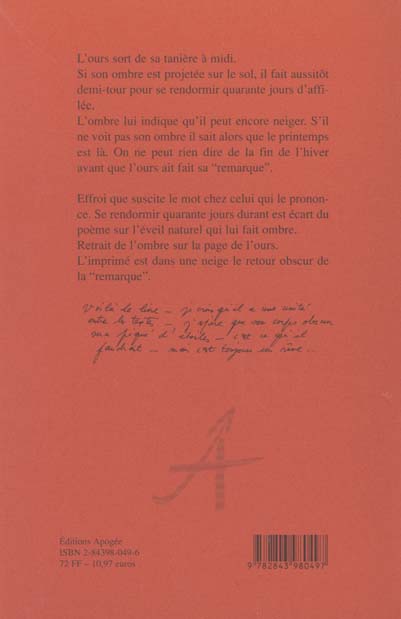 L'ours sort de sa tanière à midi.
Si son ombre est projetée sur le sol, il fait aussitôt
demi-tour pour se rendormir quarante jours d'affi-
lée.
L'ombre lui indique qu'il peut encore neiger. S'il
ne voit pas son ombre il sait alors que le printemps
est là. On ne peut rien dire de la fin de l'hiver
avant que l'ours ait fait sa “remarque”.
Effroi que suscite le mot chez celui qui le pronon-
ce. Se rendormir quarante jours durant est écart du
poème sur l'éveil naturel qui lui fait ombre.
Retrait de l'ombre sur la page de l'ours.
L'imprimé est dans une neige le retour obscur de
la “remarque”.
Voilà le livre – je crois qu'il a une unité
entre les textes – j'espère que son corps obscur
sera piqué d'étoiles – c'est ce qu'il
faudrait – mais c'est toujours un rêve..
A
Éditions Apogée
ISBN 2-84398-049-6
72 FF – 10,97 euros
9 782843 980497